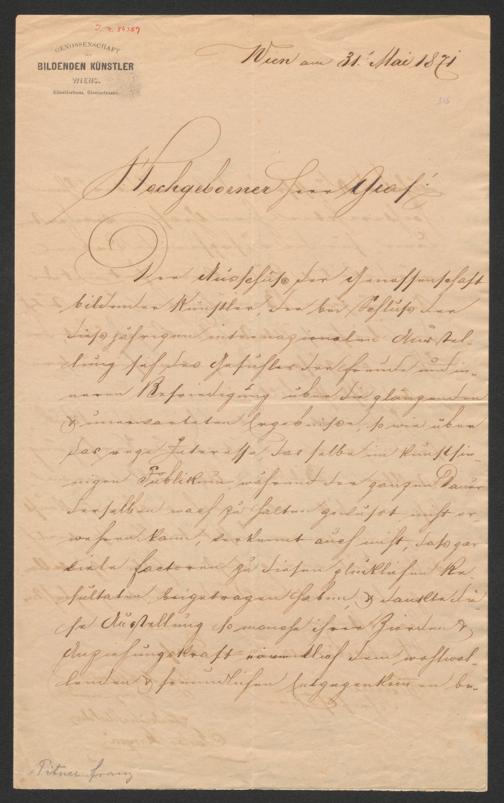 J. N. 84389
GENOSSENSCHAFT
BILDENDEN KÜNSTLER
WIENS.
Künstlerhaus, Giselastrasse.
Wien am 31t Mai 1871
Hochgeborner Herr Graf!
Der Ausschuß der Genossenschaft
bildender Künstler, der bei Schluß der
dießjährigen internazionalen Ausstel-
lung sich des Gefühles der Freude und in-
neren Befriedigung über die glänzenden
& unerwarteten Ergebnisse, so wie über
das rege Interesse, das selbe im kunstsin-
nigen Publikum während der ganzen Dauer
derselben wach zu halten gewußt nicht er
wehren kann, verkennt auch nicht, daß gar
viele Factoren zu diesen glücklichen Re-
sultaten beigetragen haben, & dankte die
se Austellung so manche ihrer Zierden &
Anziehungskraft namentlich dem wohlwol-
lenden & freundlichen Entgegenkommen be-
Pitner Franz